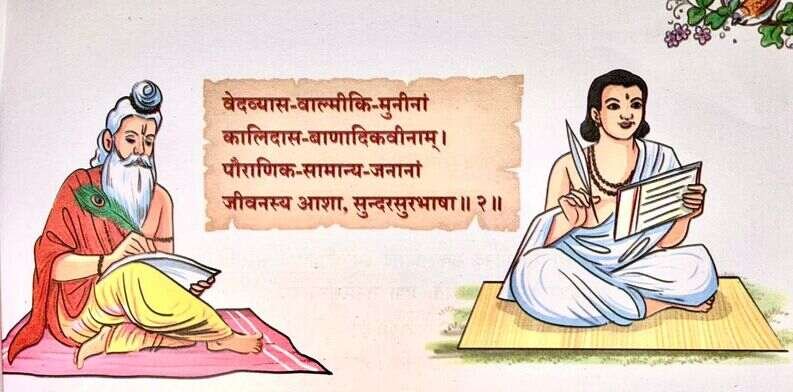 वेदव्यास-वाल्मीकि-मुनीनां
कालिदास-बाणादिकवीनाम्।
पौराणिक-सामान्य-जनानां
जीवनस्य आशा, सुन्दरसुरभाषा॥ २॥